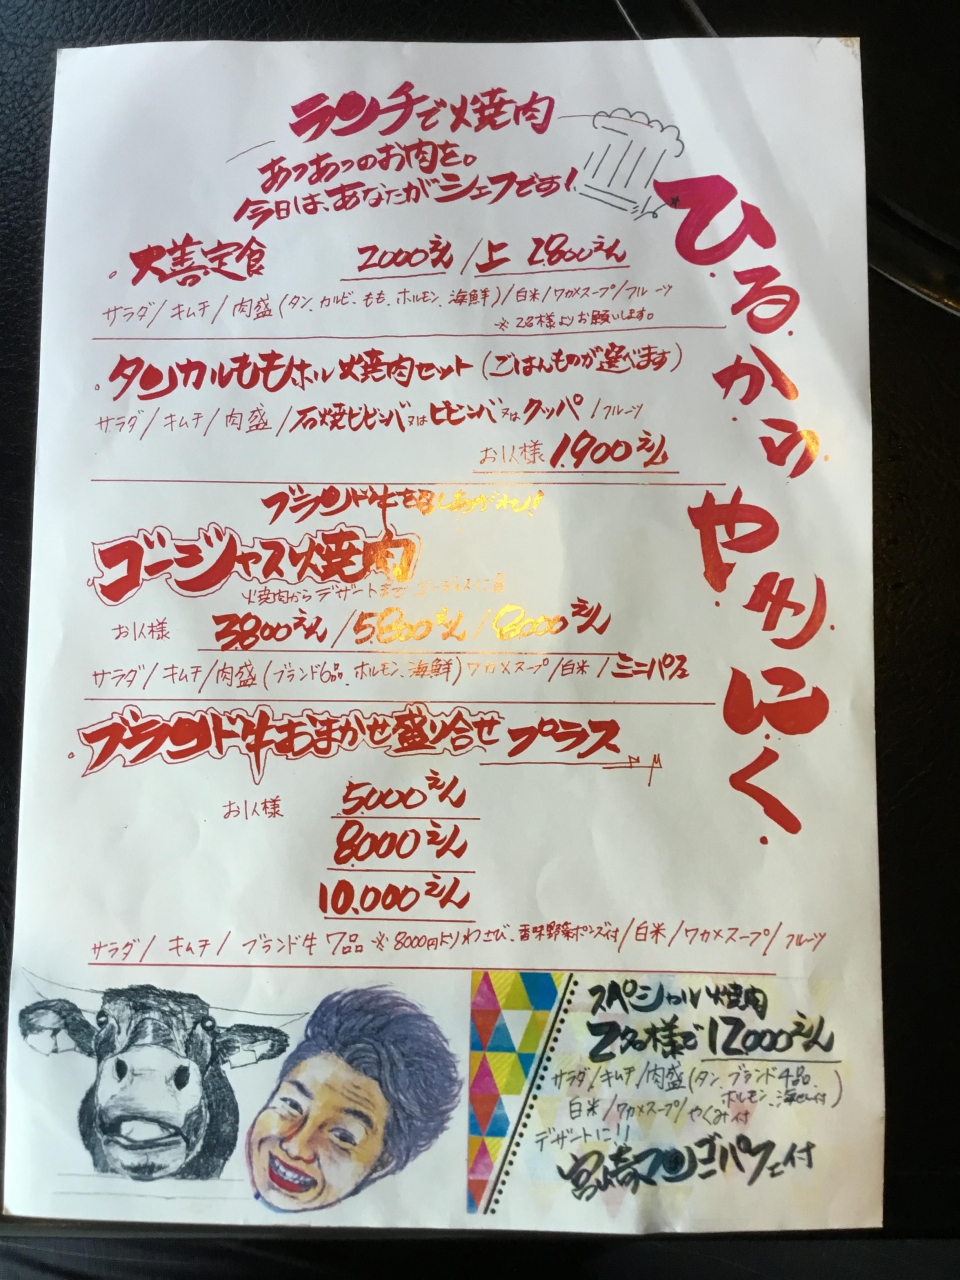 ランチで焼肉
あつあつのお肉を。
今日は、あなたがシェフです!
ひるからやきにく
大善定食 2000えん/上 2800えん
サラダ/キムチ/肉盛(タン、カルビ、もも、ホルモン、海鮮)/白米/ワカメスープ/フルーツ
※2名様よりお願いします。
タンカルももホル焼肉セット(ごはんものが選べます)
サラダ/キムチ/肉盛/石焼ビビンバ又はビビンバ又はクッパ/フルーツ
お1人様 1,900えん
ブランド牛を召しあがれ!!
ゴージャス焼肉
焼肉からデザートまでゴージャスに
お1人様 3800えん/5800えん/8000えん
サラダ/キムチ/肉盛(ブランド6品、ホルモン、海鮮)ワカメスープ/白米/ミニパフェ
ブランド牛おまかせ盛り合せプラス
お1人様 5000えん
8000えん
10,000えん
サラダ/キムチ/ブランド牛7品 ※8000円よりわさび、香味野菜ポンズ付/白米/ワカメスープ/フルーツ
スペシャル焼肉
2名様で12000えん
サラダ/キムチ/肉盛(タン、ブランド4品、ホルモン、海せん付)
白米/ワカメスープ/やくみ付
デザートに!!
宮崎マンゴーパフェ付